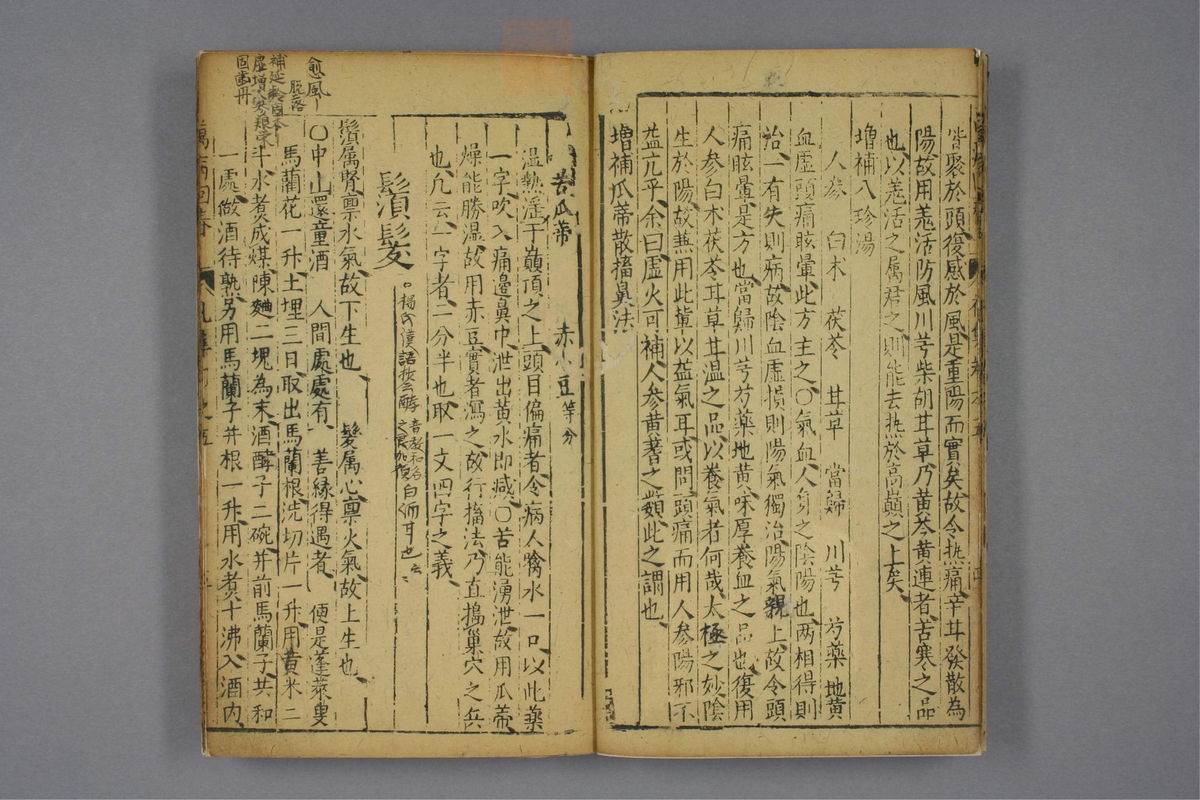 皆聚於頭復感於風是重陽而實矣故令热痛辛甘發散為
陽故用羗活防風川芎柴胡甘草乃黄芩黄連者苦寒之品
也以羗活之属君之則能去热於高巔之上矣
增補八珍湯
人參 白术 茯苓 甘草 當歸 川芎 芍藥 地黄
血虚頭痛眩暈此方主之〇氣血人身之陰陽也两相得則
治一有失則病故陰血虚損則陽氣獨治陽氣親上故令頭
痛眩暈是方也當歸川芎芍藥地黄味厚養血之品也復用
人参白木茯苓甘草甘温之品以養氣者何哉太極之妙陰
生於陽故兼用此兾以益氣耳或問頭痛而用人参陽邪不
益亢乎余曰虚火可補人参黄蓍之類此之謂也
增補瓜蒂散搐鼻法
苦瓜蒂 赤小豆等分
温熱淫于巔頂之上頭目偏痛者令病人噙水一口以此藥
一字吹入痛邊鼻中泄出黄水即减〇苦能湧泄故用瓜蒂
燥能勝濕故用赤豆實者瀉之故行搐法乃直搗巢穴之兵
也凡云一字者一分半也取一文四字之義
鬚髮
鬚属腎禀水氣故下生也 髮属心禀火氣故上生也
〇中山還童酒 人間處處有 善緣得遇者 便是蓬萊叟
馬蘭花一升土埋三日取出馬蘭根洗切片一升用黄米二
斗水煮成煤陳麯二塊為末酒酵子二碗并前馬蘭子共和
一處做酒待熟另用馬蘭子并根一升用水煮十沸入酒内
愈風
脱落
固歯丹